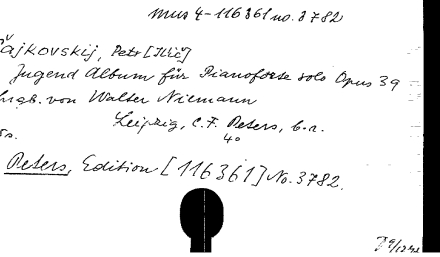 mus 4-116361 no. 3782
Čajkovskij, Petr [Ilič]
Jugend Album für Pianoforte solo Opus 39
hrgb. von Walter Niemann
Leipzig, C.F. Peters, b.r.
4°
Peters, Edition [116361] No. 3782.